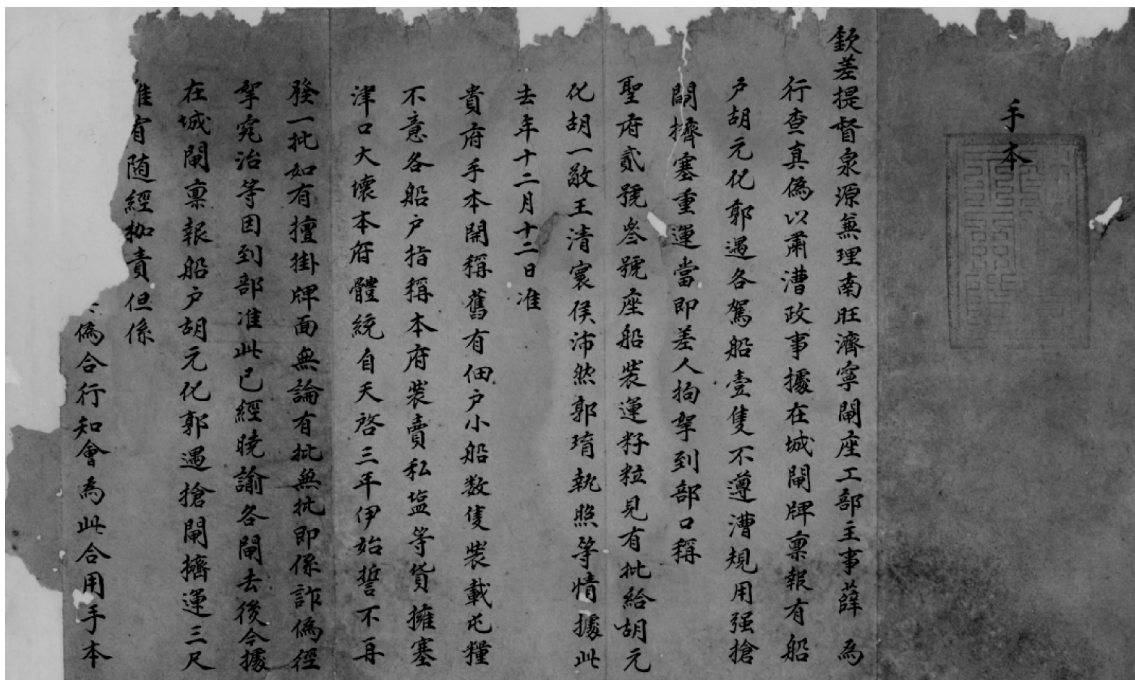 手本
欽差提督泉源兼理南旺濟寧閘座工部主事薛 為
行查真偽以肅漕政事據在城閘牌稟報有船
戶胡元化郭遇各駕船壹隻不遵漕規用强搶
閘擠塞重運當即差人拘拏到部口稱
聖府貳號叁號座船裝運籽粒見有批給胡元
化胡一敬王清寰侯沛然郭琦執照等情據此
去年十二月十二日准
貴府手本開稱舊有佃戶小船数隻裝載屯糧
不意各船戶指稱本府裝賣私盐等貨擁塞
津口大壞本府體統自天啓三年伊始誓不再
發一批如有擅掛牌面無論有批無批即係詐偽徑
拏究治等因到部准此已經曉諭各閘去後今據
在城閘稟報船戶胡元化郭遇搶閘擠運三尺
隨經枷責但係
偽合行知會為此合用手本